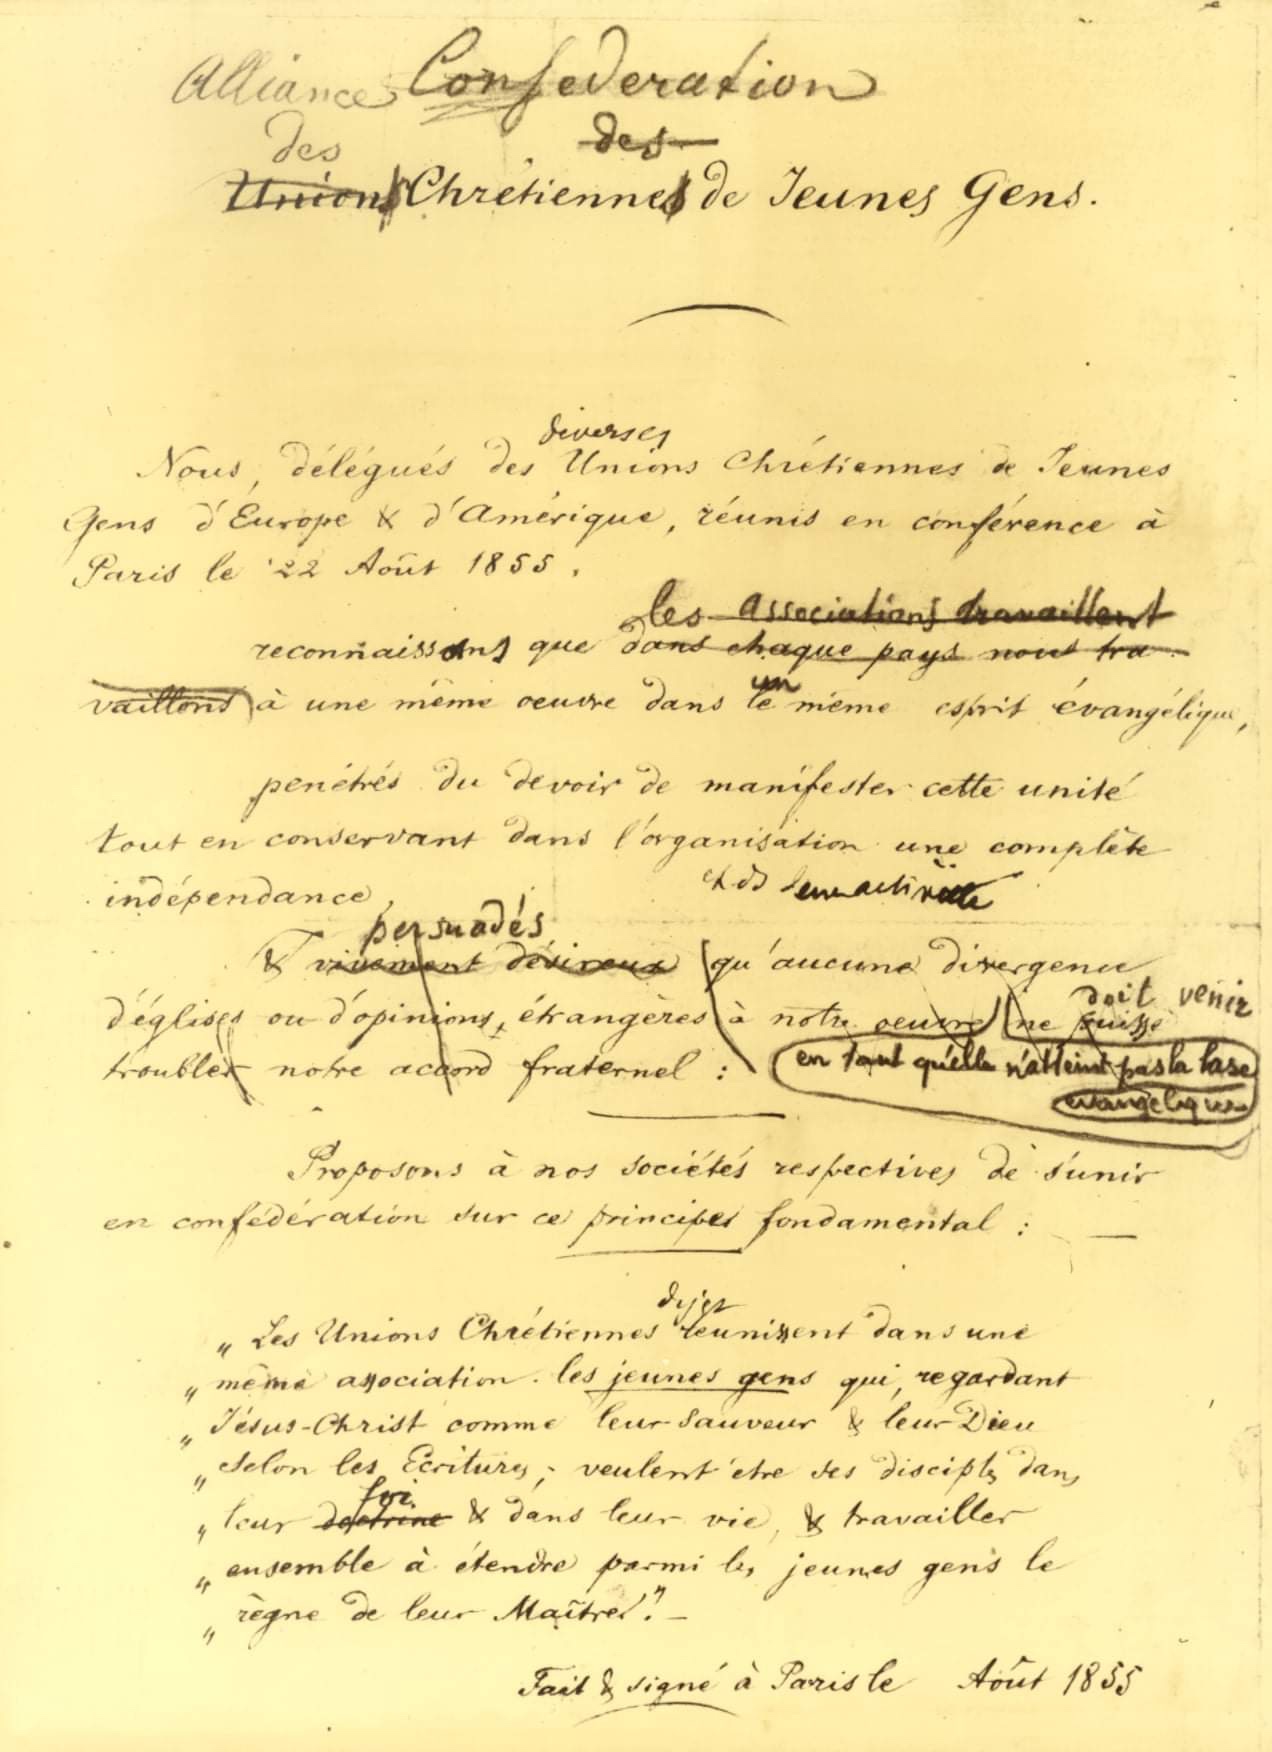 Alliance Confederation
des des
Unions Chrétiennes de Jeunes Gens.
diverses
Nous, délégués des Unions Chrétiennes de Jeunes
Gens d'Europe & d'Amérique, réunis en conférence à
Paris le 22 Août 1855,
les associations travaillent
reconnaissons que dans chaque pays nous tra-
un
vaillons à une même oeuvre dans le même esprit évangélique,
penétrés du devoir de manifester cette unité
tout en conservant dans l'organisation une complète
indépendance, et de leur activité
persuadés
& vivement désireux qu'aucune divergence
doit venir
d'églises ou d'opinions, étrangères à notre oeuvre ne puisse
troubler notre accord fraternel : en tant qu'elle n'atteint pas la base
evangelique
Proposons à nos sociétés respectives de s'unir
en confédération sur ce principes fondamental : —
„ Les Unions Chrétiennes réunissent dans une
„ même association les jeunes gens qui, regardant
„ Jésus-Christ comme leur Sauveur & leur Dieu
„ selon les Ecritures, veulent etre ses disciples dans
foi
„ leur doctrine & dans leur vie, & travailler
„ ensemble à étendre parmi les jeunes gens le
„ règne de leur Maître." —
Fait & signé à Paris le Août 1855